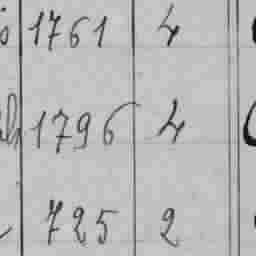 1761 4
1796 4
725 2